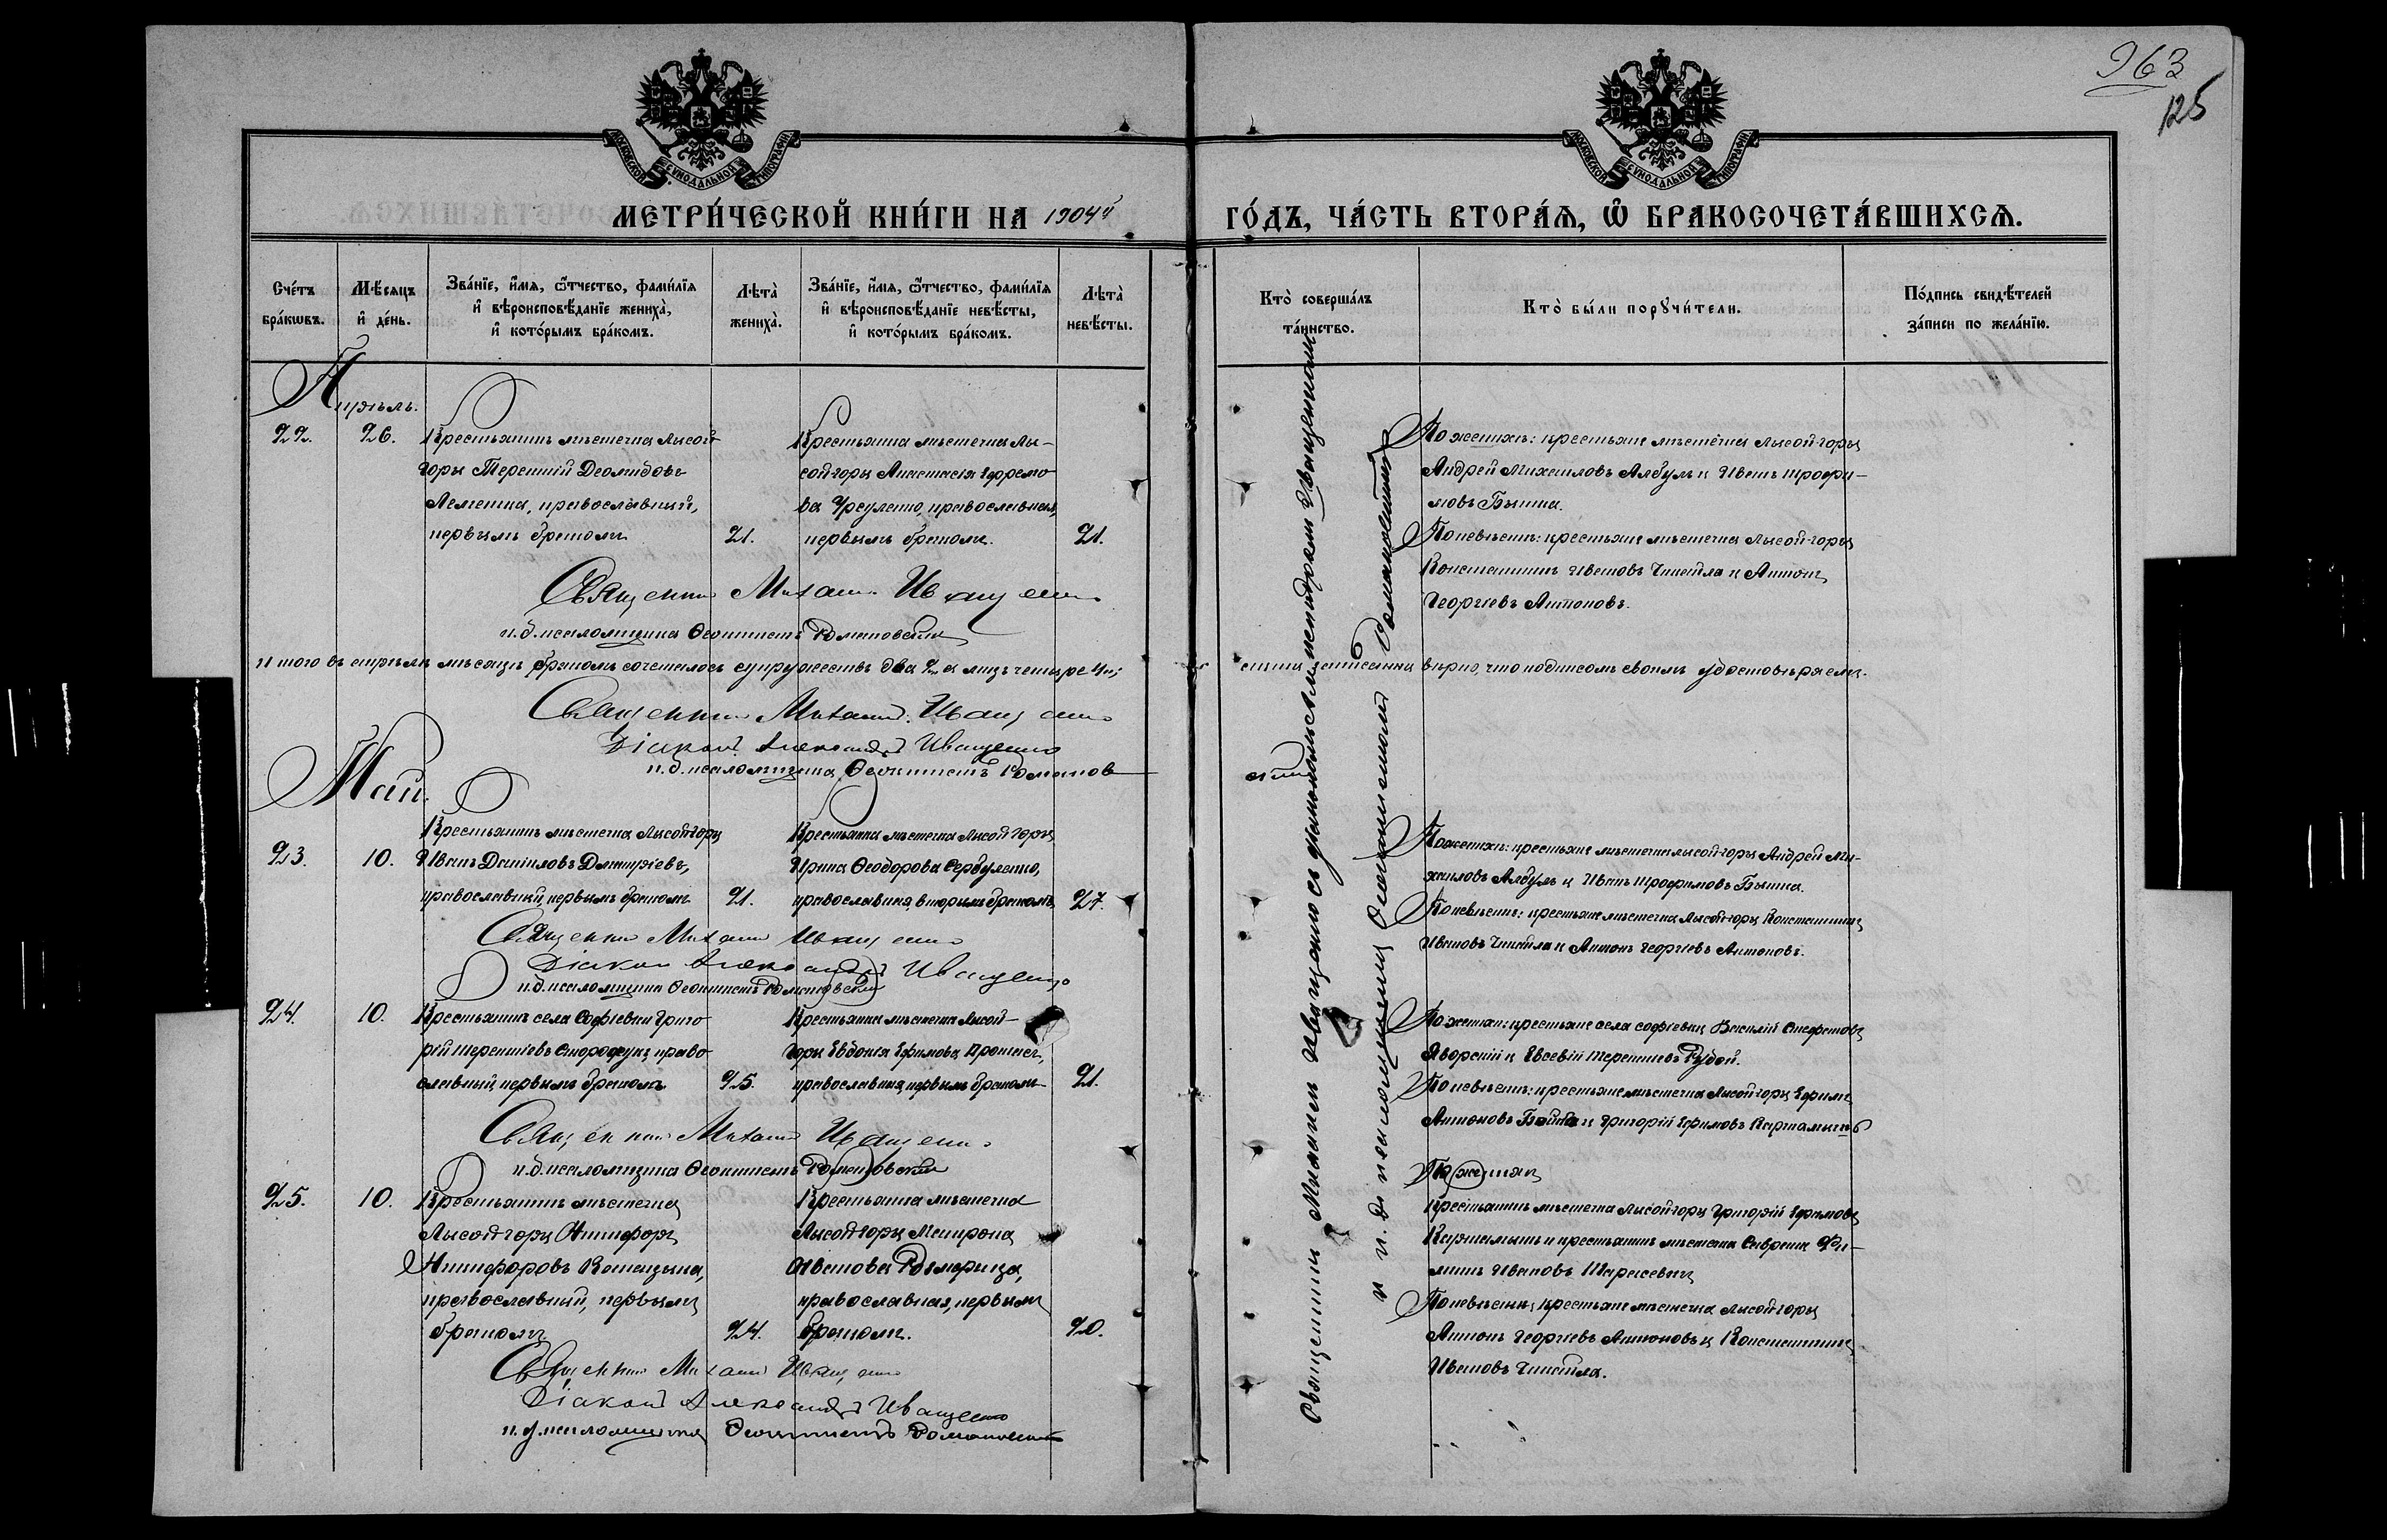 963
125
МОСКОВСКОЙ СУНОДАЛЬНОЙ ТИПОГРАФІИ
МОСКОВСКОЙ СУНОДАЛЬНОЙ ТИПОГРАФІИ
МЕТРИ́ЧЕСКОЙ КНИ́ГИ НА 1904й
ГО́ДЪ, ЧА́СТЬ ВТОРА́Я, Ѽ БРАКОСОЧЕТА́ВШИХСЯ.
Сче́тъ бра́кωвъ.
Мѣ́сяцъ и҆ де́нь.
Зва́нїе, и҆́мя, ѻ҆́тчество, фами́лїя и҆ вѣроисповѣ́данїе жениха̀, и҆ кото́рымъ бра́комъ.
Лѣта̀ жениха̀.
Зва́нїе, и҆́мя, ѻ҆́тчество, фами́лїя и҆ вѣроисповѣ́данїе невѣ́сты, и҆ кото́рымъ бра́комъ.
Лѣта̀ невѣ́сты.
Кто̀ соверша́лъ та́инство.
Кто̀ бы́ли порꙋчи́тели.
По́дпись свидѣ́телей за́писи по жела́нїю.
Апрѣль.
22.
26.
Крестьянинъ мѣстечка Лысой
горы Терентій Деомидовъ
Лементка, православный,
первымъ бракомъ
21.
Крестьянка мѣстечка Лы-
сой горы Анастасія Ефремо
ва Урсуленко, православная,
первымъ бракомъ.
21.
По женихѣ: крестьяне мѣстечка Лысой-горы
Андрей Михаиловъ Албулъ и Иванъ Трофи-
мовъ Бынка.
По невѣстѣ: крестьяне мѣстечка Лысой-горы
Константинъ Ивановъ Чикитла и Антонъ
Георгіевъ Антоновъ.
Священникъ Михаилъ Иващенко
и.д. псаломщика Ѳеоктистъ Романовскій
Итого въ апрѣлѣ мѣсяцѣ бракомъ сочеталось супружествъ два 2, а лицъ четыре 4;
записана вѣрно, что подписомъ своимъ удостовѣряемъ.
Священникъ Михаилъ Иващенко
Діаконъ Александръ Иващенко
и.д. псаломщика Ѳеоктистъ Романов
скій
Май.
23.
10.
Крестьянинъ мѣстечка Лысой горы
Иванъ Даниловъ Дмитріевъ,
православный, первымъ бракомъ
21.
Крестьянка мѣстечка Лысой горы
Ирина Ѳеодорова Сербуленко,
православная, вторымъ бракомъ
27.
По женихѣ: крестьяне мѣстечка Лысой-горы Андрей Ми-
хаиловъ Албулъ и Иванъ Трофимовъ Бынка.
По невѣстѣ: крестьяне мѣстечка Лысой-горы Константинъ
Ивановъ Чикитла и Антонъ Георгіевъ Антоновъ.
Священникъ Михаилъ Иващенко
Діаконъ Александръ Иващенко
и.д. псаломщика Ѳеоктистъ Романовскій
24.
10.
Крестьянинъ села Софіевки Григо
рій Терентіевъ Сторожукъ, право
славный, первымъ бракомъ
25.
Крестьянка мѣстечка Лысой-
горы Евдокія Ефимова
православная, первымъ бракомъ
21.
По женихѣ: крестьяне села Софіевки Василій Стефановъ
Яворскій и Евсевій Терентіевъ Рудой.
По невѣстѣ: крестьяне мѣстечка Лысой горы Ефимъ
Антоновъ Бойко и Григорій Ефимовъ Картамышъ
Священникъ Михаилъ Иващенко
и.д. псаломщика Ѳеоктистъ Романовскій
25.
10.
Крестьянинъ мѣстечка
Лысой горы Никифоръ
Никифоровъ
православный, первымъ
бракомъ
24.
Крестьянка мѣстечка
Лысой горы Матрона
Иванова
православная, первымъ
бракомъ.
20.
По женихѣ
крестьянинъ мѣстечка Лысой горы Григорій Ефимовъ
Картамышъ и крестьянинъ мѣстечка Саврани Фи-
липъ Ивановъ Тарасевичъ
По невѣстѣ: крестьяне мѣстечка Лысой горы
Антонъ Георгіевъ Антоновъ и Константинъ
Ивановъ Чикитла.
Священникъ Михаилъ Иващенко
Діаконъ Александръ Иващенко
и.д. псаломщика Ѳеоктистъ Романовскій
Священникъ Михаилъ Иващенко съ діакономъ Александромъ Иващенкомъ
и и.д. псаломщика Ѳеоктистомъ Романовскимъ